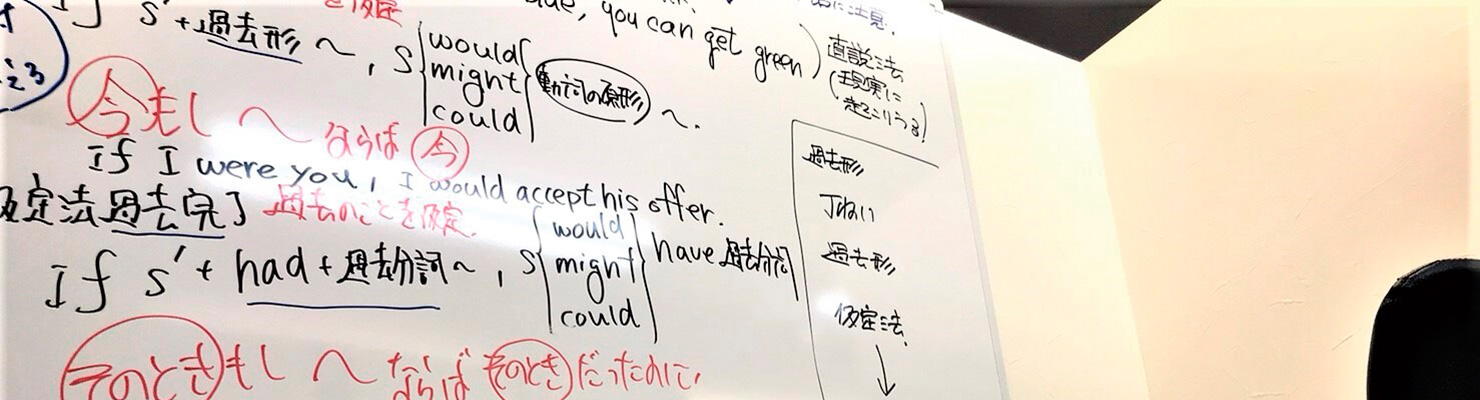 を仮定
you can get green)
に注意.
If S'+過去形 〜, S { would might could } 動詞の原形 〜.
直説法
(現実に
起こりうる)
今もし 〜 ならば 今
If I were you, I would accept his offer.
仮定法過去完了 過去のことを仮定.
If S'+had+過去分詞〜, S { would might could } have 過去分詞
そのときもし 〜 ならば そのとき だったのに,
過去形
丁ねい
過去形
仮定法
↓